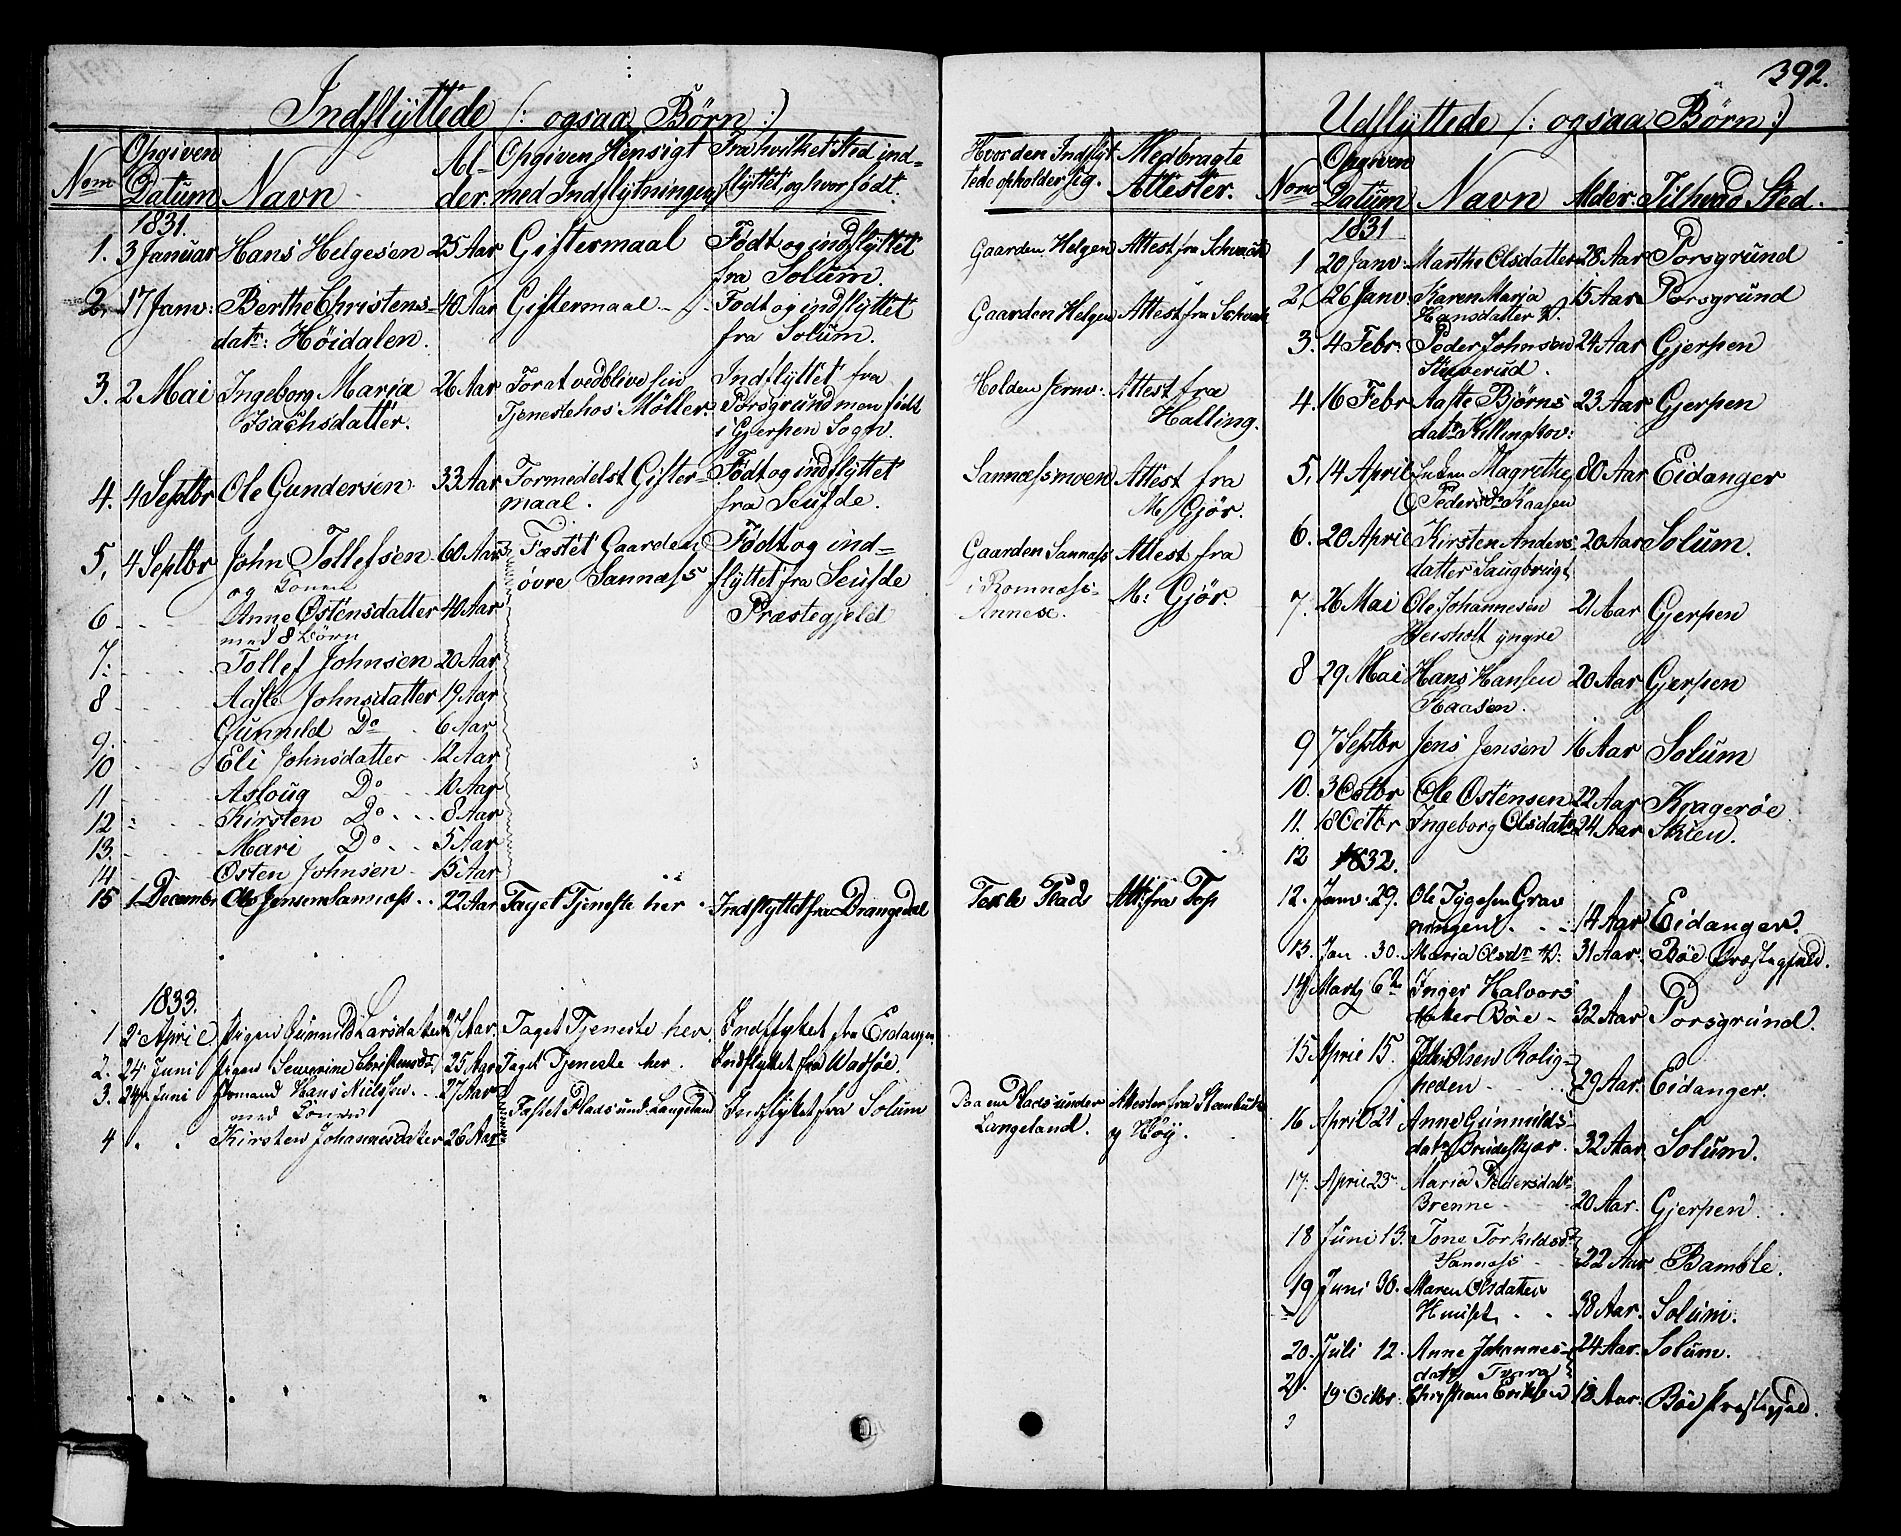 392.
Indflyttede (: ogsaa Børn :)
Nom
Opgiven Datum
Navn
Alder.
Opgiven Hensigt med Indflytningen
Fra hvilket Sted indflyttet, og hvor født.
Hvor den Indflyttede opholder sig.
Medbragte Attester.
1831.
1. 3 Januar Hans Helgesen 25 Aar Giftermaal Født og indflyttet Gaarden Helgen Attest fra
fra Solum.
2, 17 Janv: Berthe Christens- 40 Aar Giftermaal Født og indflyttet Gaarden Helgen Attest fra
datr: Höidalen. fra Solum.
3. 2 Mai Ingeborg Maria 26 Aar For at vedblive sin Indflyttet fra Holden Jernv: Attest fra
Isachsdatter. Tjeneste hos Möller. Porsgrund men født Halling.
i Gjerpen Sogn.
4. 4 Septbr Ole Gundersen 33 Aar Formedelst Gifter- Født og indflyttet Sannæssmoen Attest fra
maal. fra Seufde. M: Gjör.
5, 4 Septbr John Tollefsen 60 Aar Fæstet Gaarden Født og ind= Gaarden Sannæss Attest fra
og Konen øvre Sannæss flyttet fra Seufde i Romnæss M: Gjör.
6 Anne Østensdatter 40 Aar Præstegjeld Annex.
med 8 Børn
7. Tollef Johnsen 20 Aar
8 Aaste Johnsdatter 19 Aar
9. Gunnild Do 6 Aar
10 Eli Johnsdatter 12 Aar
11 Asloug Do 10 Aar
12 Kirsten Do 8 Aar
13. Mari Do 5 Aar
14 Østen Johnsen 15 Aar
15 1 Decembr Ole Jensen Sannæss 22 Aar Taget Tjeneste her. Indflyttet fra Drangedal Plads Att: fra
1833.
1 2 April Pigen Gunnild Larsdatter 27 Aar. Taget Tjeneste her. Indflyttet fra Eidanger
2. 24 Juni Pigen Severine 25 Aar Taget Tjeneste her. Indflyttet fra
3. 24 Juni Hans Nielssen 27 Aar Fæstet Plads und: Langeland Indflyttet fra Solum Paa en Plads under Attester fra
med Konen Langeland.
4 Kirsten Johannesdatter 26 Aar
Udflyttede (: ogsaa Børn :)
Nom
Opgiven Datum
Navn
Alder.
Til hvad Sted.
1831
1 20 Janv: Marthe Olsdatter 28 Aar Porsgrund
2, 26 Janv Karen Maria 15 Aar Porsgrund
Hansdatter
3. 4 Febr. Peder Johnsen 24 Aar Gjerpen
4. 16 Febr Aaste Bjørns 23 Aar Gjerpen
datr
5, 14 April Magrethe 80 Aar Eidanger
Kaasen
6. 20 April Kirsten Anders 20 Aar Solum.
datter
7. 26 Mai Ole Johannesen 21 Aar Gjerpen
Hersholt yngre
8 29 Mai Hans Hansen 20 Aar Gjerpen
Kaasen.
9 7 Septbr Jens Jensen 16 Aar Solum
10. 3 Octbr Ole Ostensen 22 Aar Kragerøe
11. 18 Octbr Ingeborg Olsdatr 24 Aar Skien.
12 1832.
12. Janv. 29. Ole Tygesen Grav
ningen 14 Aar Eidanger.
13. Jan. 30. Maria Olsdr 31 Aar. Bøe Præstegjeld.
14 Marts 6 Inger Halvors
datter Bøe 32 Aar Porsgrund.
15 April 15. Olsen Rolig=
heden 29 Aar. Eidanger.
16 April 21 Anne Gunnilds-
datr 32 Aar. Solum.
17. April 23 Maria Pedersdatr
Brenne 20 Aar. Gjerpen.
18 Juni 13. Tone Torkildsd.
Sannæss 22 Aar Bamble.
19 Juni 30. Maren Olsdatter
38 Aar. Solum.
20. Juli 12. Anne Johannes- 24 Aar. Solum.
datr
21. 19 Octbr. Christian Eriksen 18 Aar. Bøe Præstegjeld.